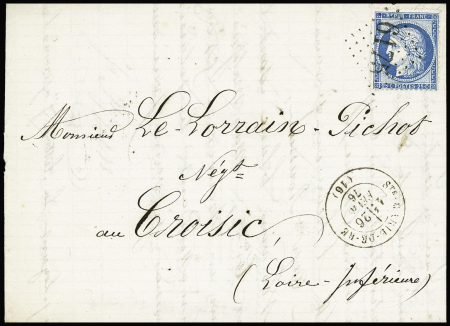 REPUB. FRANC.
25 C. POSTES 25 C.
Monsieur Le-Lorrain-Pichot
Négt.
au Croisic,
(Loire-Inférieure)
STE-MARIE-DE-RE
(16)
26
76